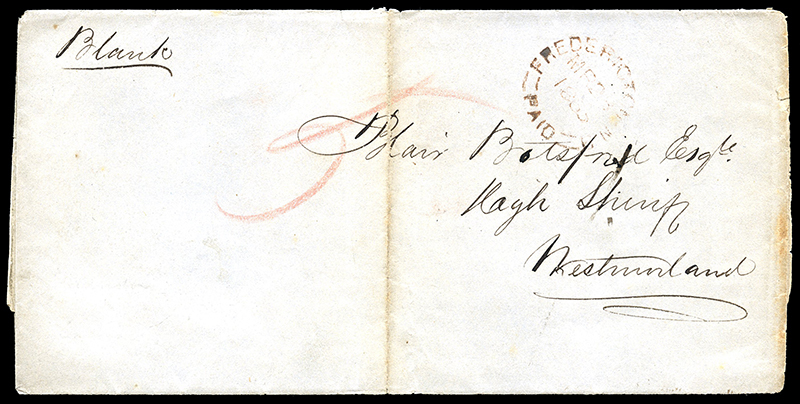 Blank
PAID
FREDERICTON
5
Blair Botsford Esqre.
High Sheriff
Westmorland